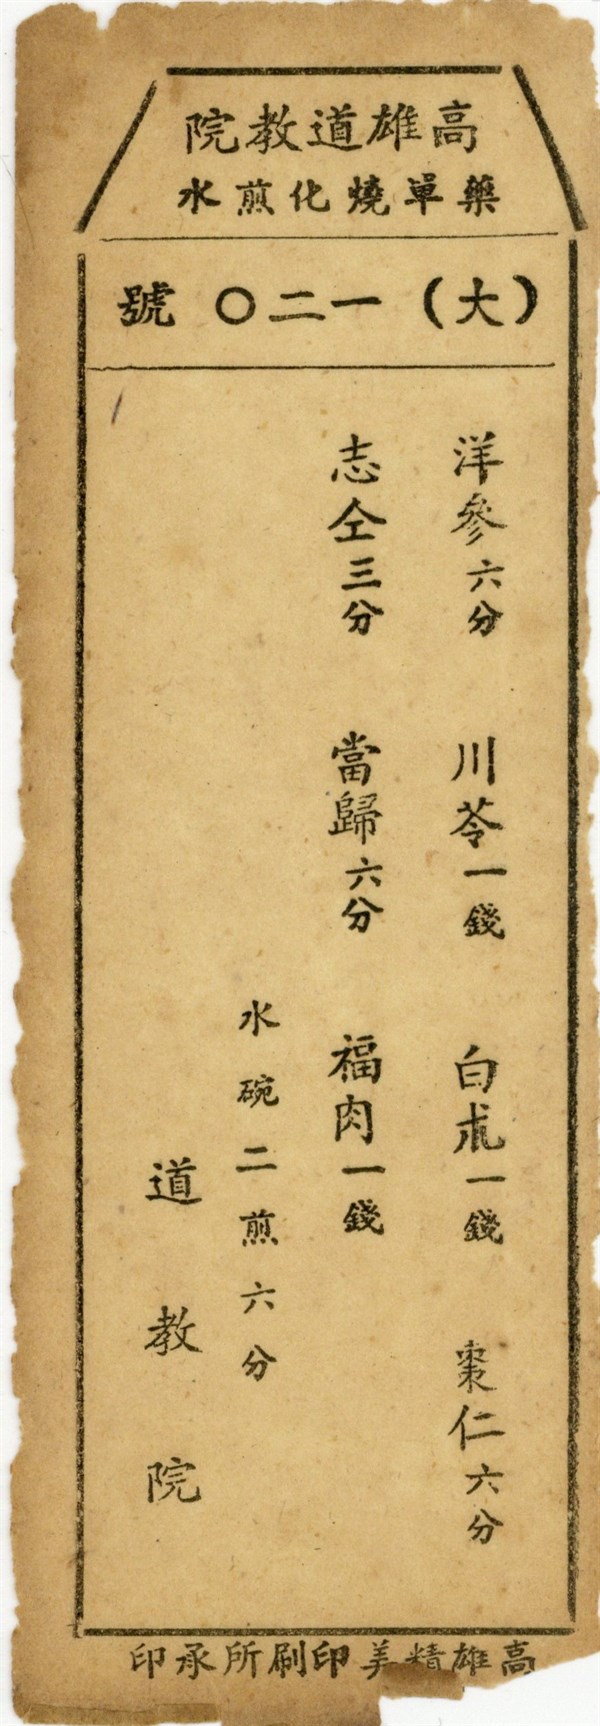 高雄道教院
藥單燒化煎水
(大)一二〇號
洋參六分 川苓一錢 白朮一錢 棗仁六分
志仝三分 當歸六分 福肉一錢
水碗二煎六分
道教院
高雄精美印刷所承印